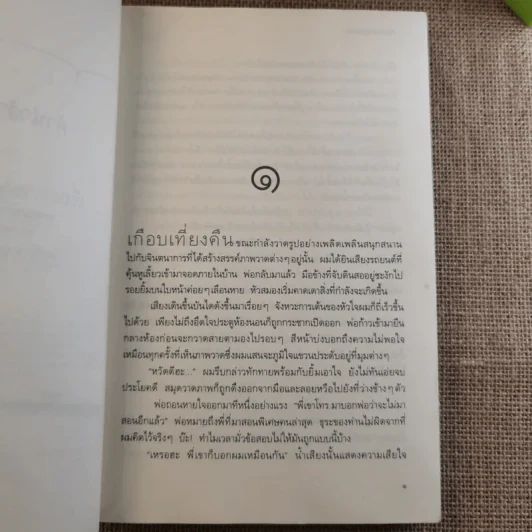 ๑
เกือบเที่ยงคืน ขณะกำลังวาดรูปอย่างเพลิดเพลินสนุกสนาน
ไปกับจินตนาการที่ได้สร้างสรรค์ภาพวาดต่างๆ อยู่นั้น ผมได้ยินเสียงรถยนต์ที่
คุ้นหูเลี้ยวเข้ามาจอดภายในบ้าน พ่อกลับมาแล้ว มือข้างที่จับดินสออยู่ชะงักไป
รอยยิ้มบนใบหน้าค่อยๆ เลือนหาย หัวสมองเริ่มคาดเดาสิ่งที่กำลังจะเกิดขึ้น
เสียงเดินขึ้นบันไดดังขึ้นมาเรื่อยๆ จังหวะการเต้นของหัวใจผมก็ถี่เร็วขึ้น
ไปด้วย เพียงไม่ถึงอึดใจประตูห้องนอนก็ถูกกระชากเปิดออก พ่อก้าวเข้ามายืน
กลางห้องก่อนจะกวาดสายตามองไปรอบๆ สีหน้าบ่งบอกถึงความไม่พอใจ
เหมือนทุกครั้งที่เห็นภาพวาดซึ่งผมแสนจะภูมิใจแขวนประดับอยู่ที่มุมต่างๆ
"หวัดดีฮะ..." ผมรีบกล่าวทักทายพร้อมกับยิ้มเอาใจ ยังไม่ทันเอ่ยจบ
ประโยคดี สมุดวาดภาพก็ถูกดึงออกจากมือและลอยหวือไปยังที่ว่างข้างๆ ตัว
พ่อถอนหายใจออกมาทีหนึ่งอย่างแรง "พี่เขาโทร.มาบอกพ่อว่าจะไม่มา
สอนอีกแล้ว" พ่อหมายถึงพี่ที่มาสอนพิเศษคนล่าสุด ธุระของท่านไม่ผิดจากที่
ผมคิดไว้จริงๆ บ๊ะ! ทำไมเวลามั่วข้อสอบไม่ให้มันถูกแบบนี้บ้าง
"เหรอฮะ พี่เขาก็บอกผมเหมือนกัน" น้ำเสียงนั้นแสดงความเสียใจ